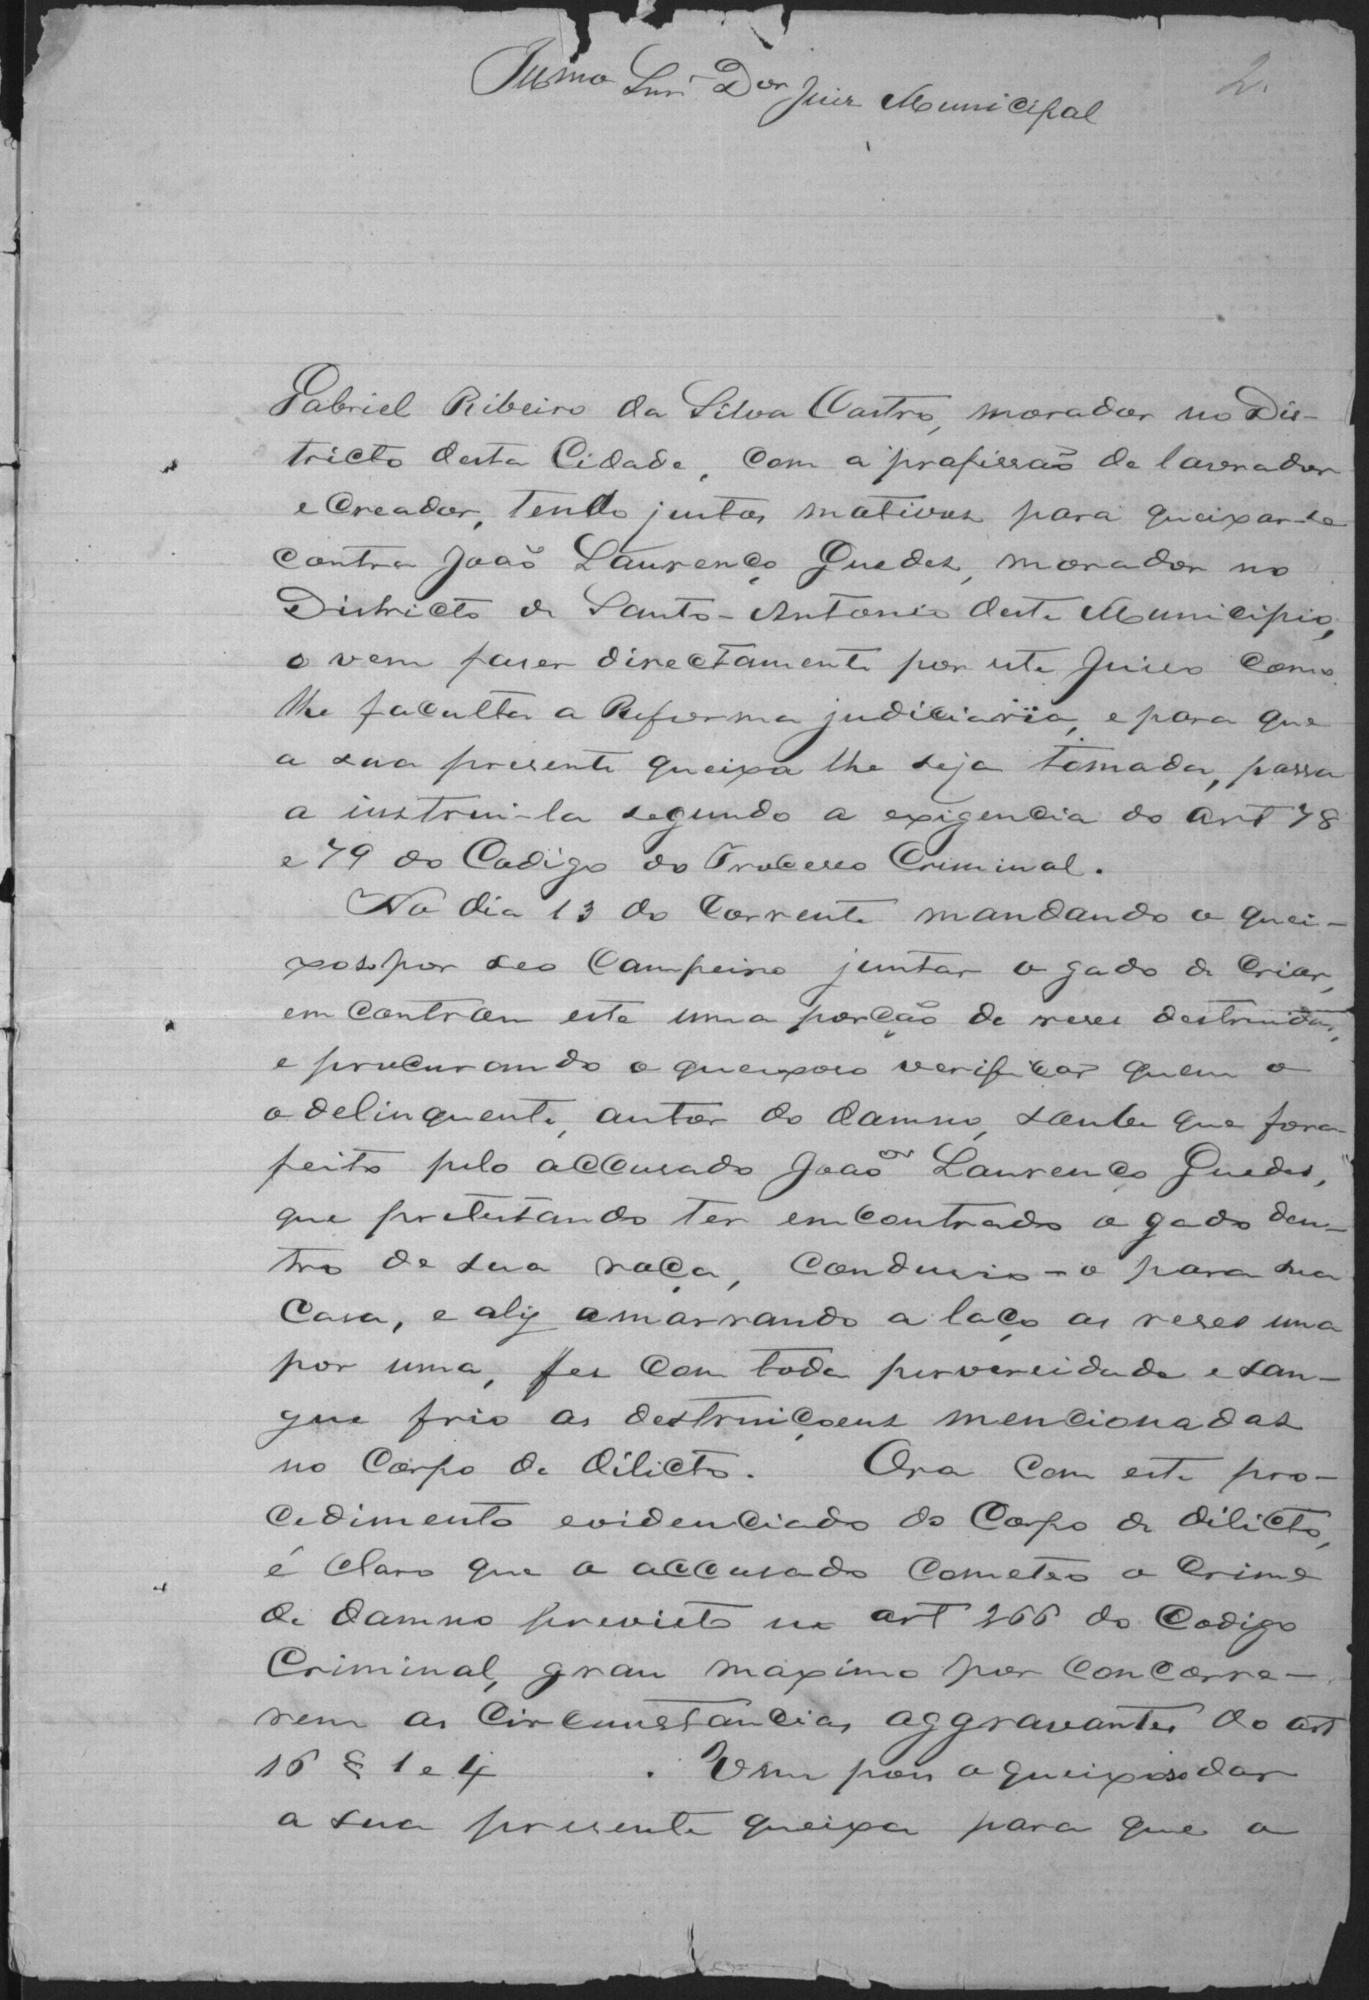 Illmo Snr Dor Juiz Municipal
2.
Gabriel Ribeiro da Silva Castro, morador no Dis-
tricto desta Cidade, com a profissaõ de lavrador
e Creador, tendo justos motivos para queixar-se
contra Joaõ Laurenço Guedes, morador no
Districto de Santo-Antonio deste Municipio,
o vem faser directamente por este Juiso como
lhe faculta a Reforma judiciaria, e para que
a sua presente queixa lhe seja tomada, passa
a instrui-la segundo a exigencia do art 78
e 79 do Codigo do Processo Criminal.
No dia 13 do Corrente mandando o quei-
xoso por seo Campeiro juntar o gado de Criar,
em controu este uma porção de reses destruidas,
e procurando o queixoso verificar quem o
o delinquente, autor do damno, soube que fora
feito pelo accusado Joaõ Laurenço Guedes,
que pretestando ter emcontrado o gado den-
tro de sua roça, condusio-o para sua
Casa, e aly amarrando a laço as reses uma
por uma, fes com toda perversidade e san-
gue frio as destruiçoens mencionadas
no Corpo de dilicto. Ora com este pro-
cedimento evidenciado do Corpo de dilicto,
é claro que o accusado cometeo o Crime
de damno previsto no art 266 do Codigo
Criminal, grau maximo por concorre-
rem as Circunstancias aggravantes do art
16 § 1 e 4 . Vem pois o queixoso dar
a sua presente queixa para que o